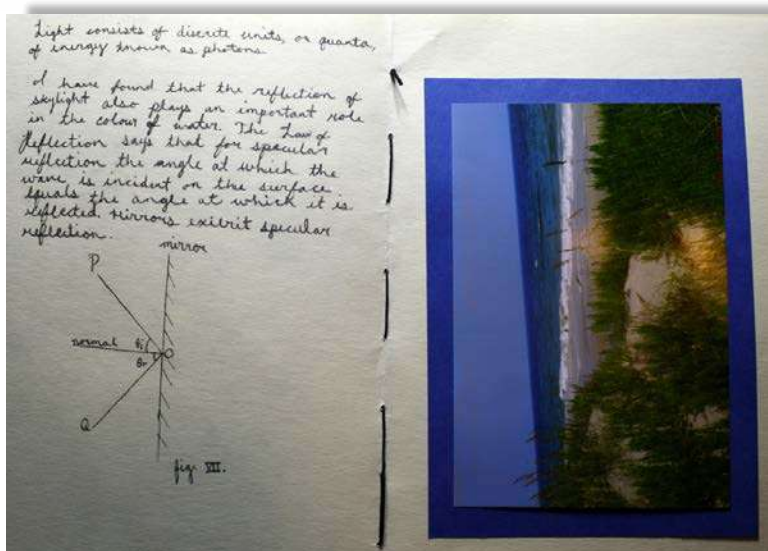 Light consists of discrete units, or quanta,
of energy known as photons.
I have found that the reflection of
skylight also plays an important role
in the colour of water. The Law of
Reflection says that for specular
reflection the angle at which the
wave is incident on the surface
equals the angle at which it is
reflected. Mirrors exibrit specular
reflection.
mirror
P
normal
θi
θr
O
Q
fig. VII.